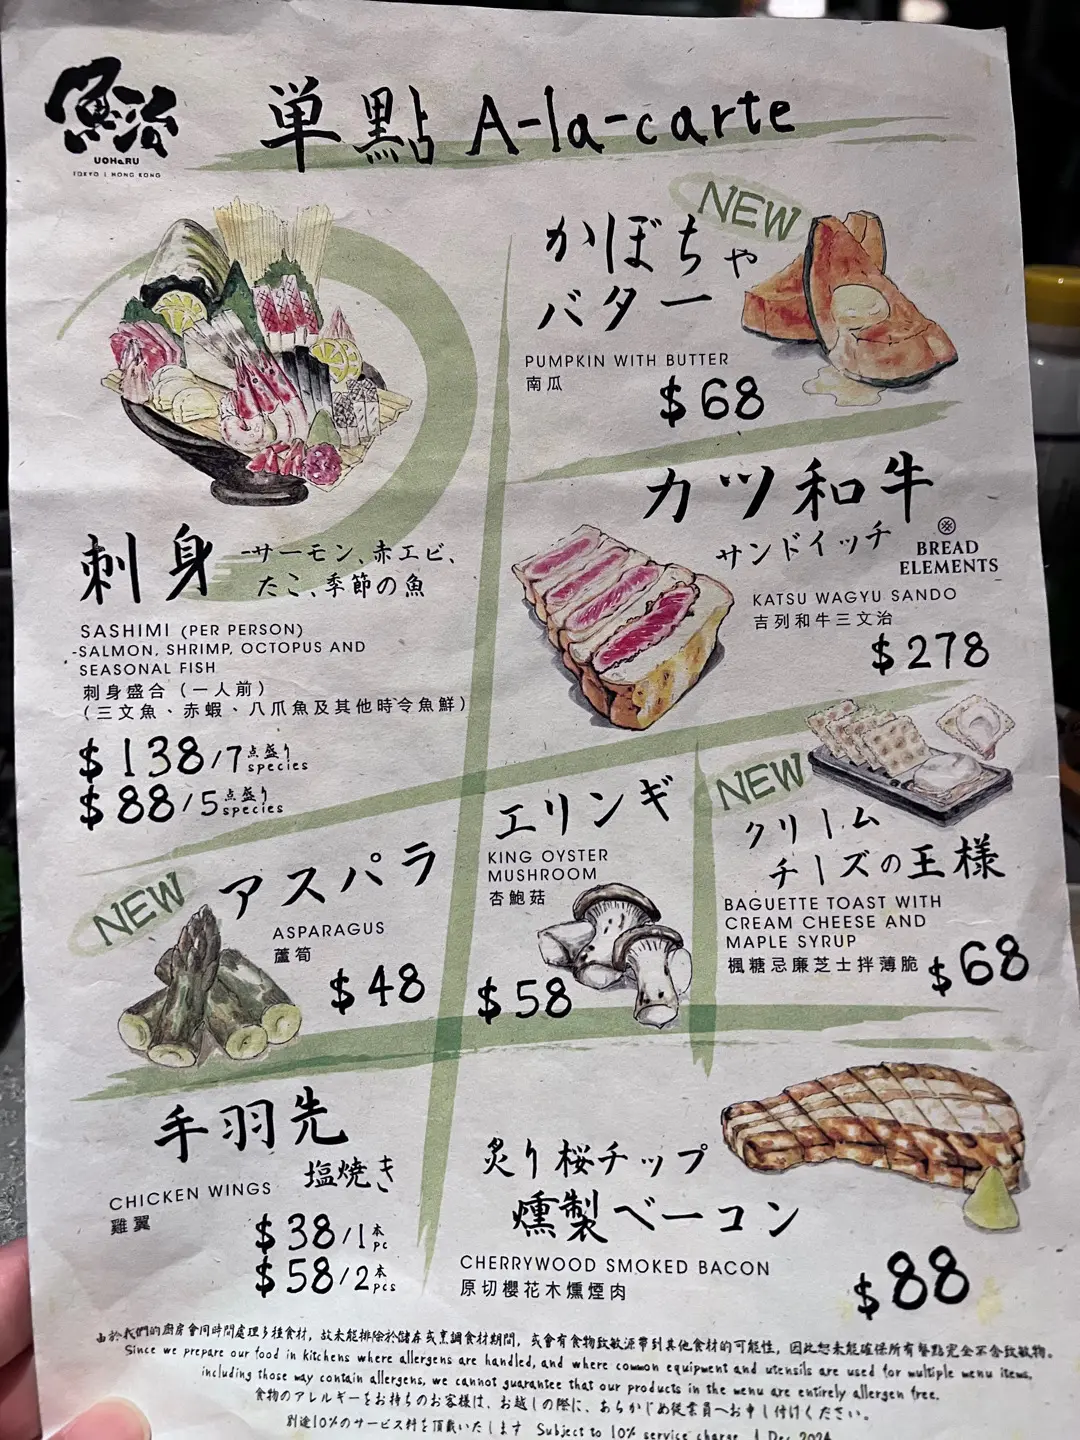 魚治
UOHARU
TOKYO | HONG KONG
単點 A-la-carte
NEW
かぼちゃ
バター
PUMPKIN WITH BUTTER
南瓜
$68
カツ和牛
サンドイッチ
BREAD
ELEMENTS
KATSU WAGYU SANDO
吉列和牛三文治
$278
刺身 -サーモン、赤エビ、
たこ、季節の魚
SASHIMI (PER PERSON)
-SALMON, SHRIMP, OCTOPUS AND
SEASONAL FISH
刺身盛合（一人前）
（三文魚、赤蝦、八爪魚及其他時令魚鮮）
$138/7点盛り species
$88/5点盛り species
NEW
アスパラ
ASPARAGUS
蘆筍
$48
エリンギ
KING OYSTER
MUSHROOM
杏鮑菇
$58
NEW
クリーム
チーズの王様
BAGUETTE TOAST WITH
CREAM CHEESE AND
MAPLE SYRUP
楓糖忌廉芝士拌薄脆
$68
手羽先
塩焼き
CHICKEN WINGS
雞翼
$38/1本 pc
$58/2本 pcs
炙り桜チップ
燻製ベーコン
CHERRYWOOD SMOKED BACON
原切櫻花木燻煙肉
$88
由於我們的廚房會同時間處理多種食材，故未能排除於儲存或烹調食材期間，或會有食物致敏源帶到其他食材的可能性，因此恕未能確保所有餐點完全不含致敏物。
Since we prepare our food in kitchens where allergens are handled, and where common equipment and utensils are used for multiple menu items,
including those may contain allergens, we cannot guarantee that our products in the menu are entirely allergen free.
食物のアレルギーをお持ちのお客様は、お越しの際に、あらかじめ従業員へお申し付けください。
別途10%のサービス料を頂戴いたします Subject to 10% service charge 1 Dec 2024